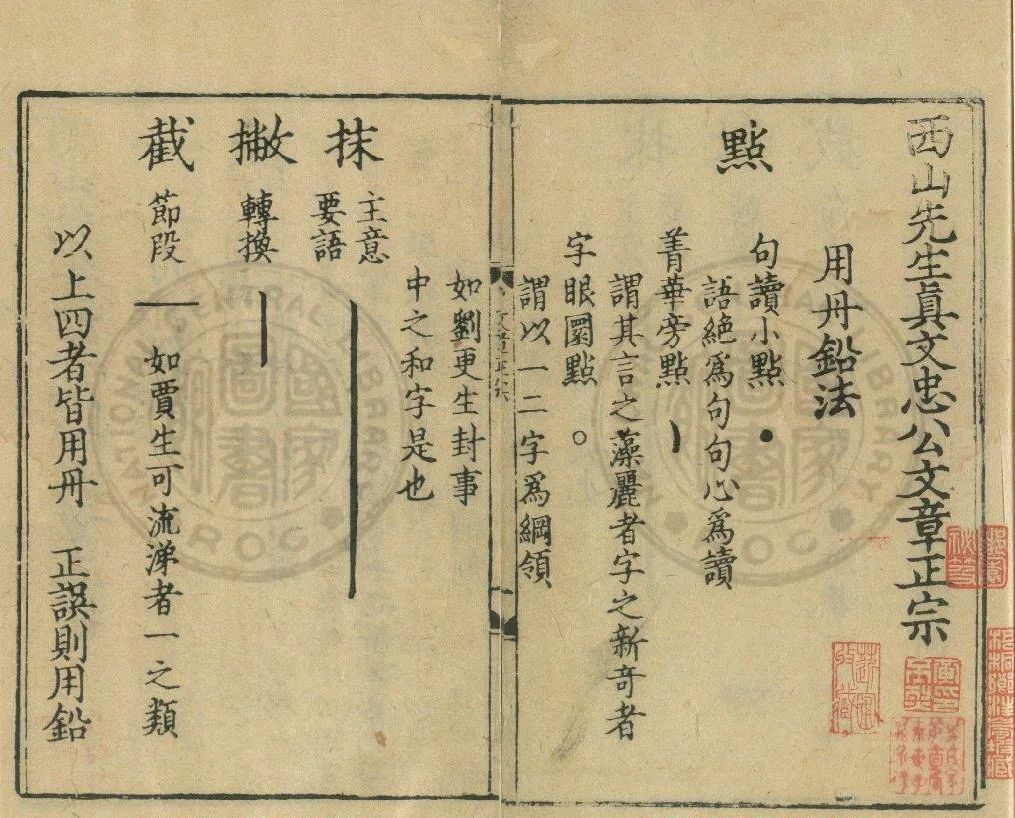 西山先生眞文忠公文章正宗
用丹鉛法
點
句讀小點
語絶爲句句心爲讀
菁華旁點
謂其言之藻麗者字之新竒者
字眼圏點
謂以一二字爲綱領
如劉更生封事
中之和字是也
抹
主意
要語
撇
轉換
截
節段
如賈生可流涕者一之類
以上四者皆用丹 正誤則用鉛